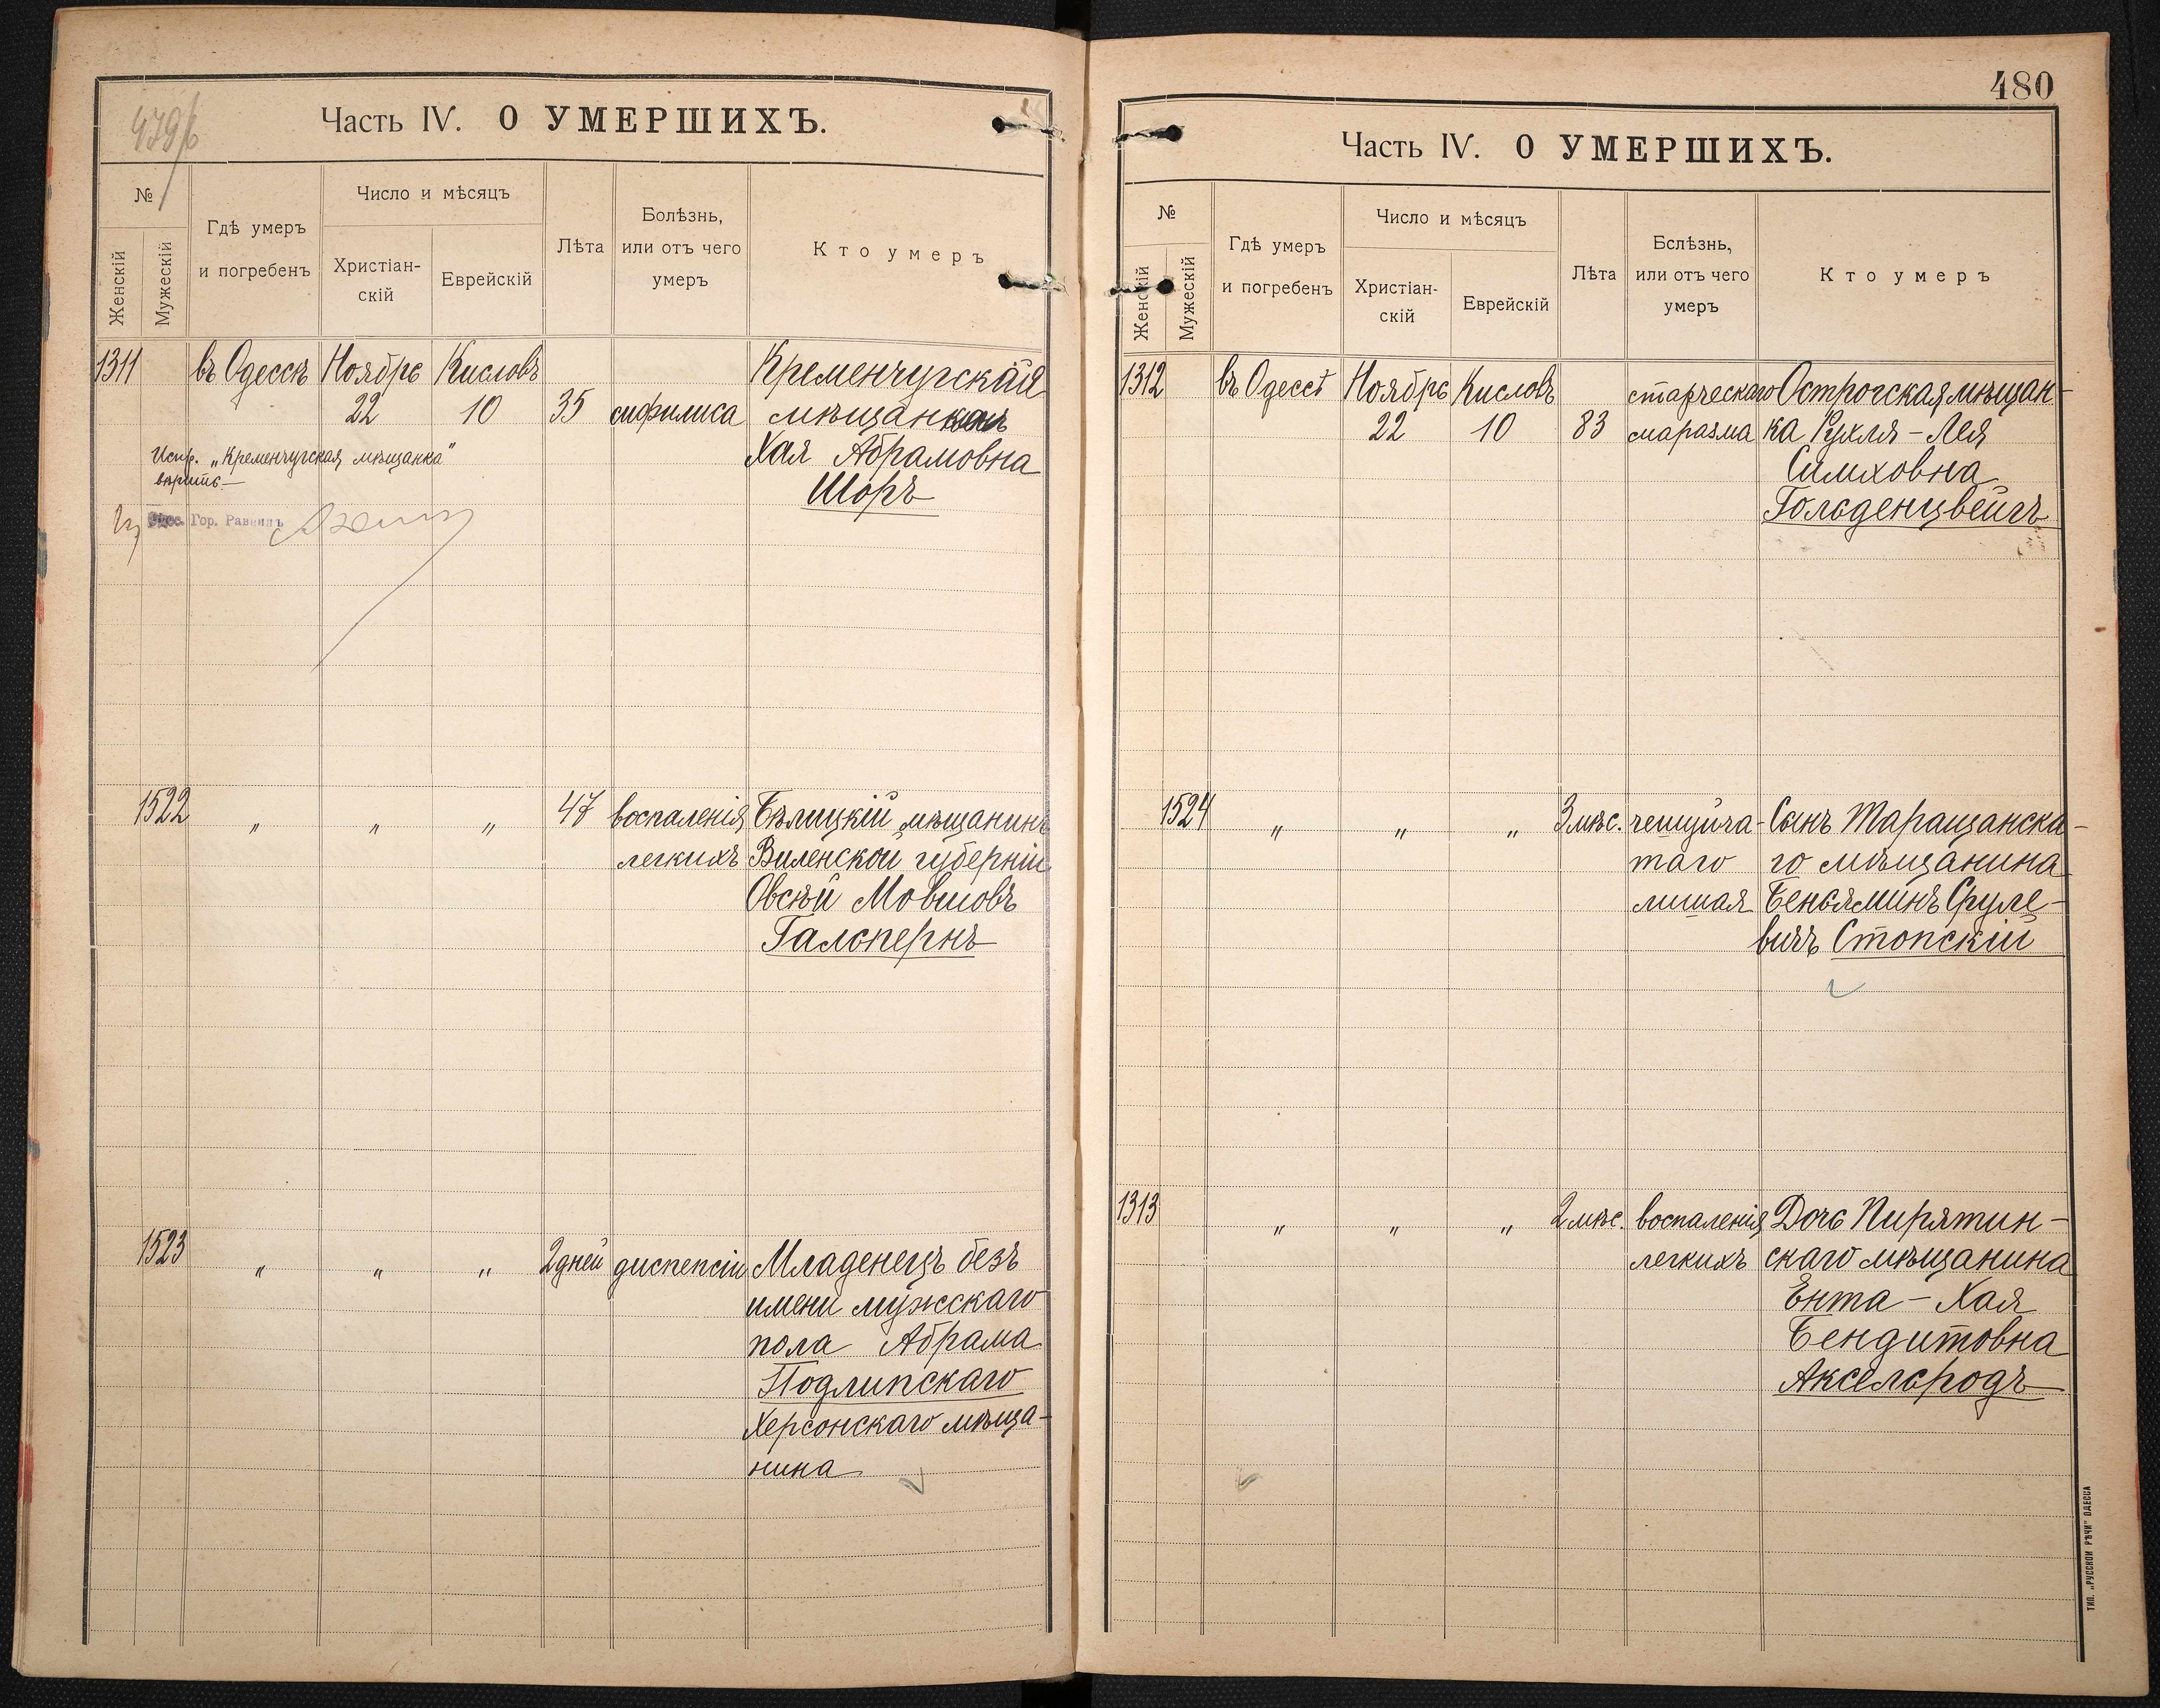 479/б
Часть IV. О УМЕРШИХЪ.
№
Женскій
Мужескій
Гдѣ умеръ
и погребенъ
Число и мѣсяцъ
Христіан-
скій
Еврейскій
Лѣта
Болѣзнь,
или отъ чего
умеръ
Кто умеръ
1311 въ Одессѣ Ноябрь Кисловъ Кременчугская
22 10 35 сифилиса мѣщанка
Хая Абрамовна
Шоръ
Испр. „Кременчугская мѣщанка"
вѣрить
Одес. Гор. Раввинъ
1522 " " " 47 воспаленія Бѣлицкій мѣщанинъ
легкихъ Виленской губерніи
Овсѣй Мовшовъ
Гальпернъ
1523 " " " 2 дней диспепсіи Младенецъ безъ
имени мужскаго
пола Абрама
Подлипскаго
Херсонскаго мѣща-
нина
480
Часть IV. О УМЕРШИХЪ.
№
Женскій
Мужескій
Гдѣ умеръ
и погребенъ
Число и мѣсяцъ
Христіан-
скій
Еврейскій
Лѣта
Бслѣзнь,
или отъ чего
умеръ
Кто умеръ
1312 въ Одессѣ Ноябрь Кисловъ старческаго Острогская мѣщан-
22 10 83 маразма ка Рухля-Лея
Симховна
Гольденцвейгъ
1524 " " " 3 мѣс. чешуйча- Сынъ Таращанска-
таго го мѣщанина
лишая Беньяминъ Сруле-
вичъ Стопскій
1313 " " " 2 мѣс. воспаленія Дочь Пирятин-
легкихъ скаго мѣщанина
Ента-Хая
Бендитовна
Аксельродъ
ТИП. „РУССКОЙ РѢЧИ" ОДЕССА